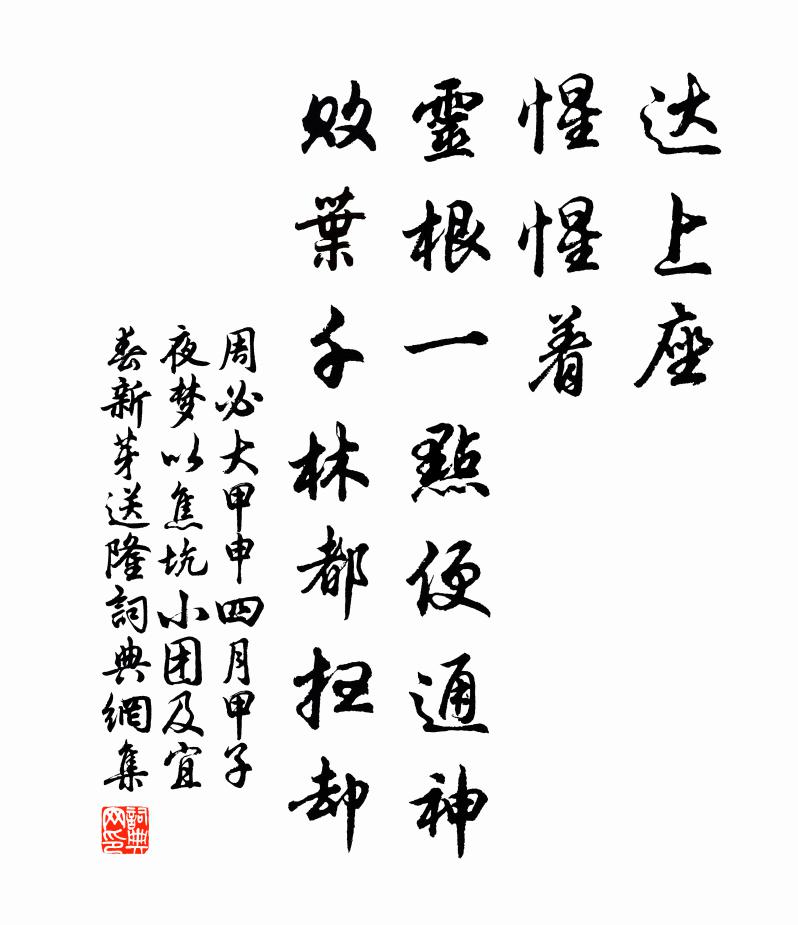 达上座
惺惺着
靈根一點便通神
败葉千林都拄却
周必大甲申四月甲子
夜梦以焦坑小团及宜
春新芽送隆詞典網集
詞典网印